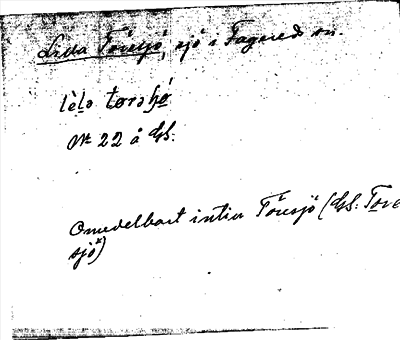 Lilla Töresjö, sjö i Fagered sn.
lèlə tørəʂø
No 22 å Gs.
Omedelbart intill Töresjö (Gs: Tore
sjö")